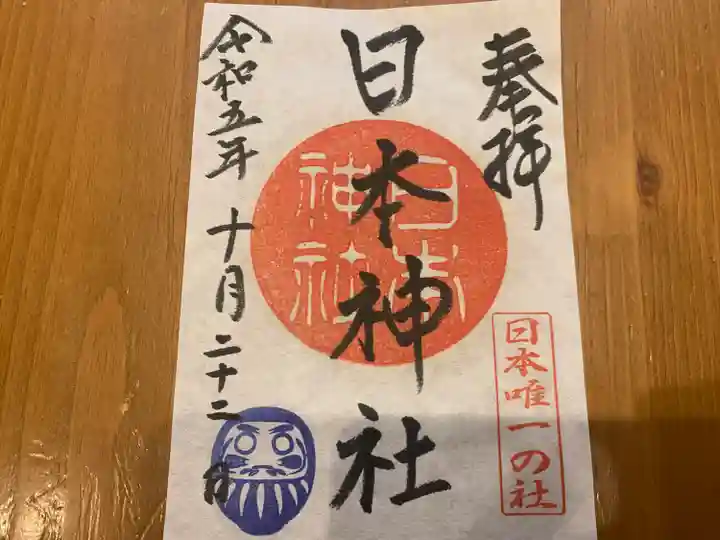 奉拝
日本唯一の社
日本神社
日本
神社
令和五年十月二十二日